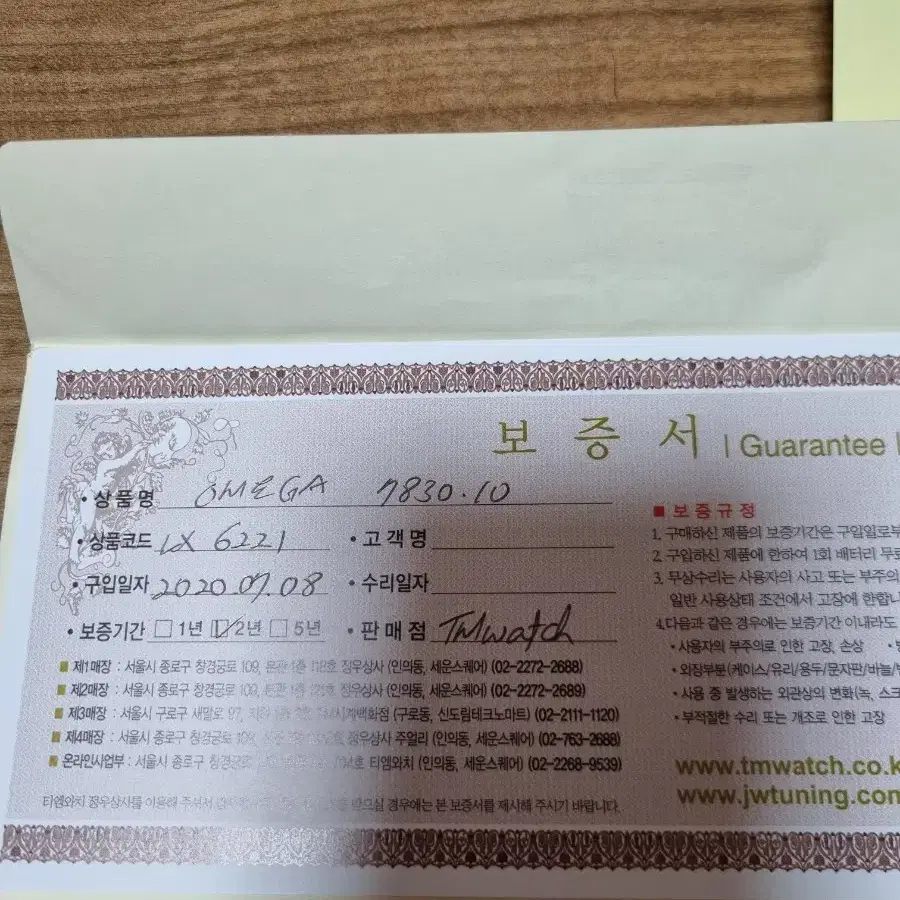 보 증 서 | Guarantee
• 상품명 OMEGA 7830.10
• 상품코드 LX 6221 • 고객명
• 구입일자 2020.07.08 • 수리일자
• 보증기간 □ 1년 □ 2년 □ 5년 • 판매점 TMwatch
■ 제1매장 : 서울시 종로구 창경궁로 109, 1층 정우상사 (인의동, 세운스퀘어) (02-2272-2688)
■ 제2매장 : 서울시 종로구 창경궁로 109, 1층 정우상사 (인의동, 세운스퀘어) (02-2272-2689)
■ 제3매장 : 서울시 구로구 새말로 97, 시계백화점 (구로동, 신도림테크노마트) (02-2111-1120)
■ 제4매장 : 서울시 종로구 창경궁로 109, 정우상사 주얼리 (인의동, 세운스퀘어) (02-763-2688)
■ 온라인사업부 : 서울시 종로구 창경궁로 티엠와치 (인의동, 세운스퀘어) (02-2268-9539)
티엠와치 정우상사를 이용해 주셔서 받으실 경우에는 본 보증서를 제시해 주시기 바랍니다.
■ 보증규정
1. 구매하신 제품의 보증기간은 구입일로부
2. 구입하신 제품에 한하여 1회 배터리 무료
3. 무상수리는 사용자의 사고 또는 부주의
일반 사용상태 조건에서 고장에 한합니
4. 다음과 같은 경우에는 보증기간 이내라도
• 사용자의 부주의로 인한 고장, 손상
• 외장부분(케이스/유리/용두/문자판/바늘/
• 사용 중 발생하는 외관상의 변화(녹, 스크
• 부적절한 수리 또는 개조로 인한 고장
www.tmwatch.co.k
www.jwtuning.com